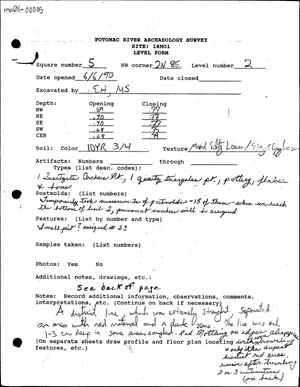 mo81-00015
POTOMAC RIVER ARCHAEOLOGY SURVEY
SITE: 18MO1
LEVEL FORM
Square number 5 NW corner 2N 8E Level number 2
Date opened 6/6/90 Date closed
Excavated by EH, MS
Depth: Opening Closing
NW .69
NE .70
SE .70
SW .69
CEN .69
Soil: Color 10YR 3/4 Texture Mond Silty Loam/
Artifacts: Numbers through
Types (list desc. codes):
1 quartz triangular pt., pottery, flakes
& bone
Postmolds: (List numbers)
Temporarily took measurements of postmolds - 18 of them - when we reach
the bottom of level 2, permanent numbers will be assigned
Features: (List by number and type)
Small pit? assigned # 23
Samples taken: (List numbers)
Photos: Yes No
Additional notes, drawings, etc.:
See back of page
Notes: Record additional information, observations, comments,
interpretations, etc. (Continue on back if necessary)
A distinct line, which was extremely straight, separated
an area with red material and a darker zone. The line was only
1-3 cm deep in some areas. Red Mottling on edges disappears
(On separate sheets draw profile and floor plan locating
features, etc.)
only the deepest
red areas
remain after troweling
2 or 3 centimeters
(on back)